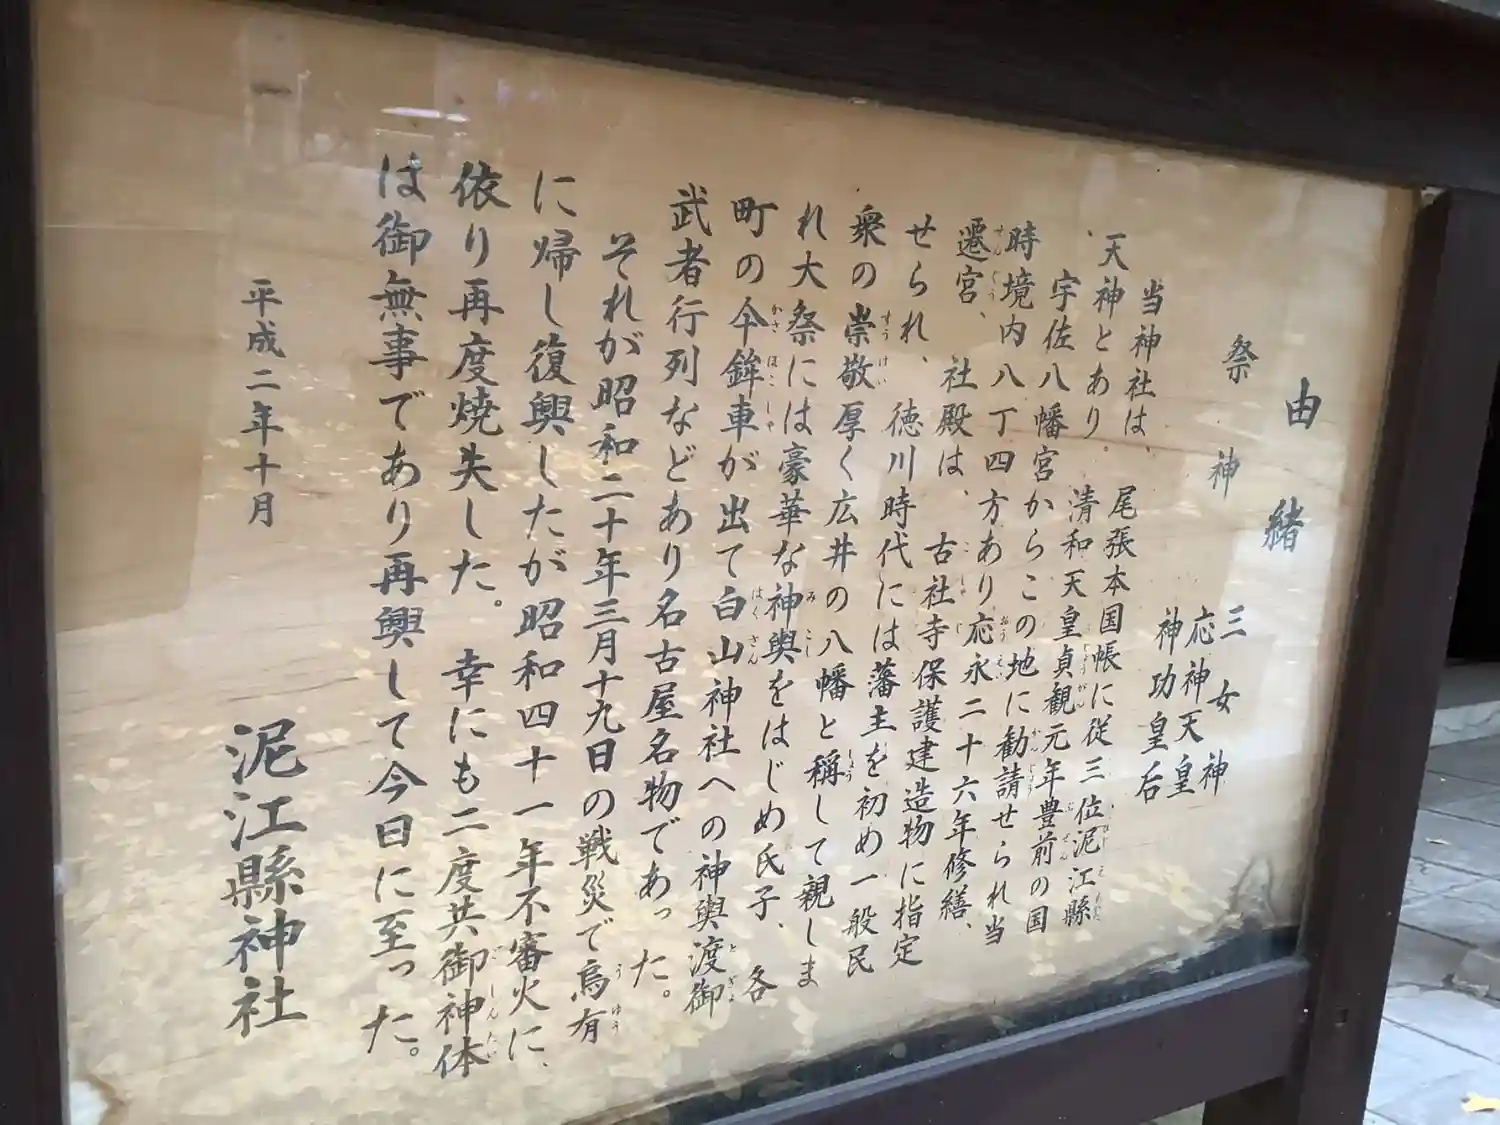 由緒
祭神 三女神
応神天皇
神功皇后
当神社は、尾張本国帳に従三位泥江縣
天神とあり。清和天皇貞観元年豊前の国
宇佐八幡宮からこの地に勧請せられ当
時境内八丁四方あり応永二十六年修繕、
遷宮、社殿は、古社寺保護建造物に指定
せられ、徳川時代には藩主を初め一般民
衆の崇敬厚く広井の八幡と稱して親しま
れ大祭には豪華な神輿をはじめ氏子、各
町の傘鉾車が出て白山神社への神輿渡御
武者行列などあり名古屋名物であった。
それが昭和二十年三月十九日の戦災で烏有
に帰し復興したが昭和四十一年不審火に、
依り再度焼失した。幸にも二度共御神体
は御無事であり再興して今日に至った。
平成二年十月
泥江縣神社